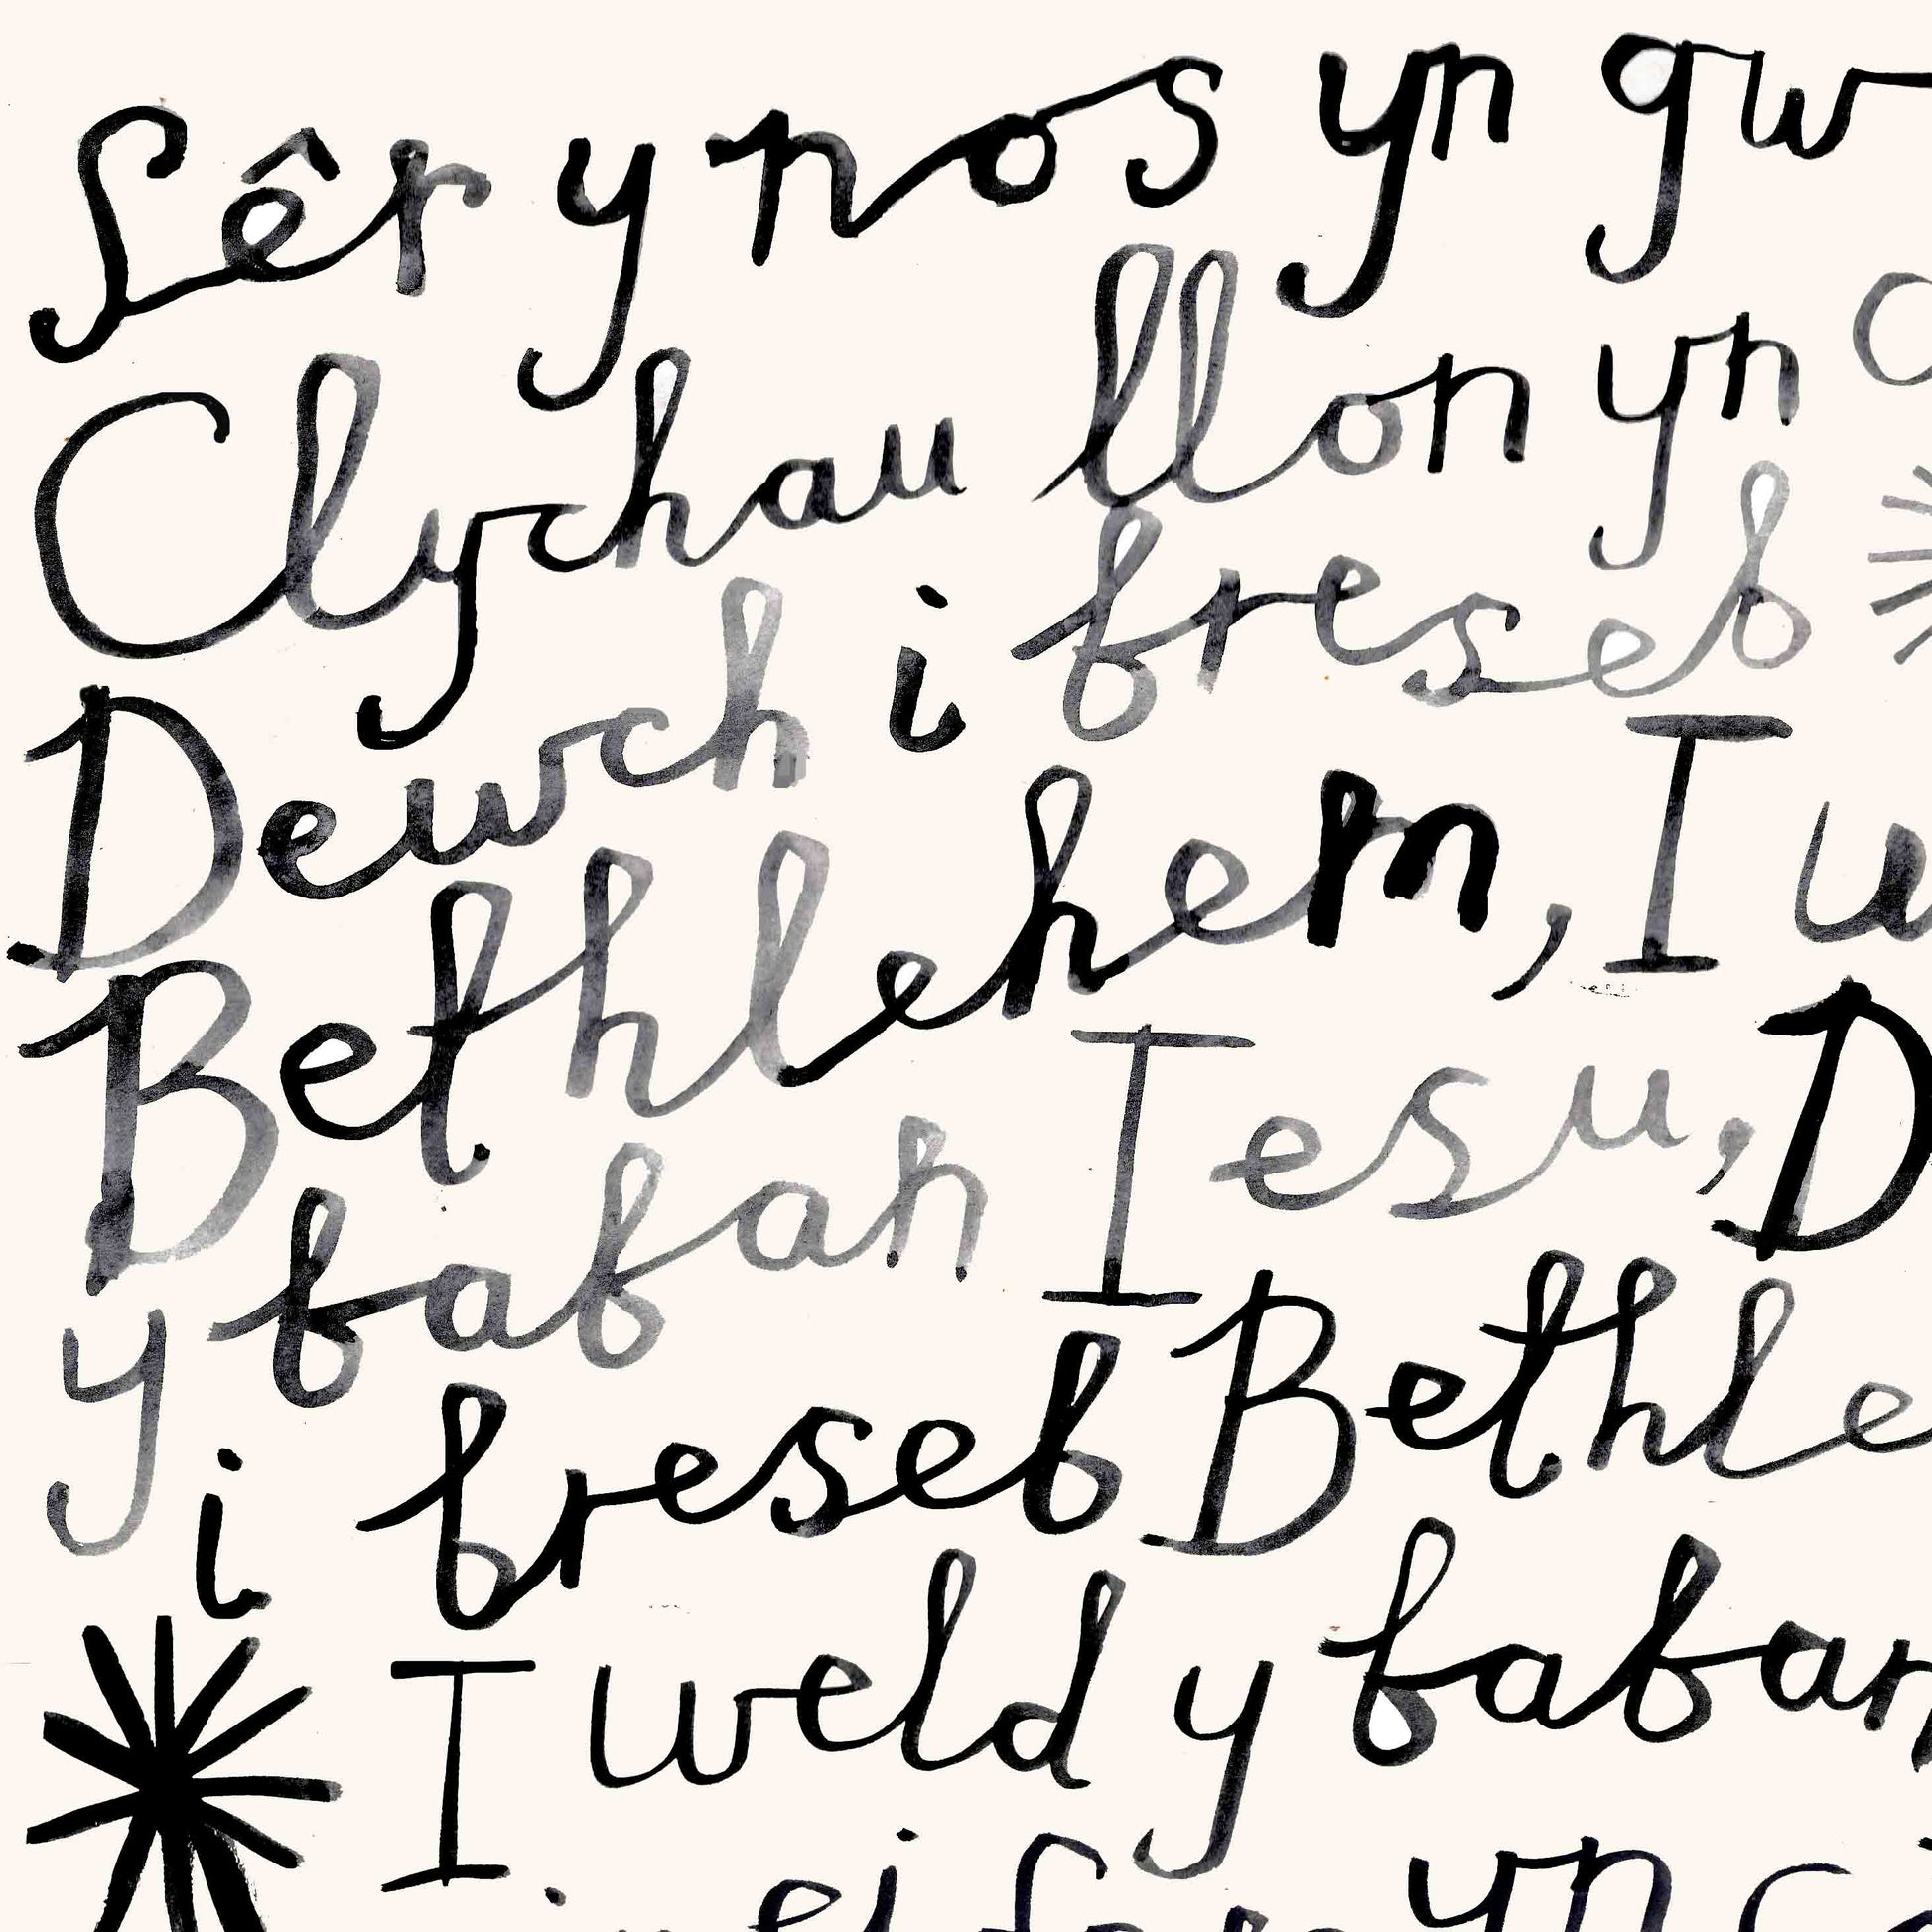 Sêr y nos yn gw
Clychau llon yn
Dewch i breseb
Bethlehem, I w
y baban Iesu, D
i breseb Bethle
I weld y baban